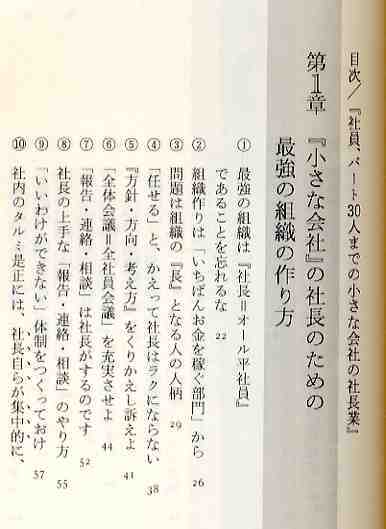 目次/『社員、パート30人までの小さな会社の社長業』
第1章 『小さな会社』の社長のための
最強の組織の作り方
① 最強の組織は『社長＝オール平社員』
であることを忘れるな 22
② 組織作りは「いちばんお金を稼ぐ部門」から 26
③ 問題は組織の『長』となる人の人柄 29
④ 「任せる」と、かえって社長はラクにならない 38
⑤ 『方針・方向・考え方』をくりかえし訴えよ 41
⑥ 「全体会議＝全社員会議」を充実させよ 44
⑦ 「報告・連絡・相談」は社長がするのです 52
⑧ 社長の上手な「報告・連絡・相談」のやり方 55
⑨ 「いいわけができない」体制をつくっておけ 57
⑩ 社内のタルミ是正には、社長自らが集中的に、